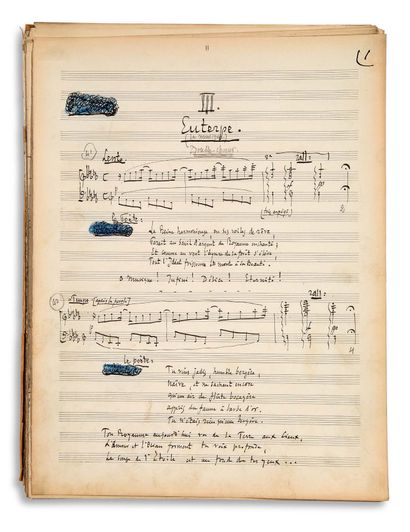 11
1
III.
Euterpe.
(La musique)
Double-chœur.
Lento
rall:
2
La Reine harmonieuse ou les voiles de rêve,
Paraît au seuil d'argent du Royaume enchanté;
Et comme au vent l'azur de la forêt s'élève
Tout l'Idéal frissonne et monte à la Beauté.
O musique! Infini! Délice! Eternité!
rall:
4
Le poète:
Tu vins jadis, humble bergère,
Naïve, et ne sachant encore
qu'un air de flûte bocagère
appris du faune à barbe d'or.
Tu n'étais rien qu'une bergère.
Ton Royaume aujourd'hui va de la Terre aux Cieux,
L'Amour et l'Océan forment ta voix profonde,
Le songe de l'Etoile est au fond de tes yeux...